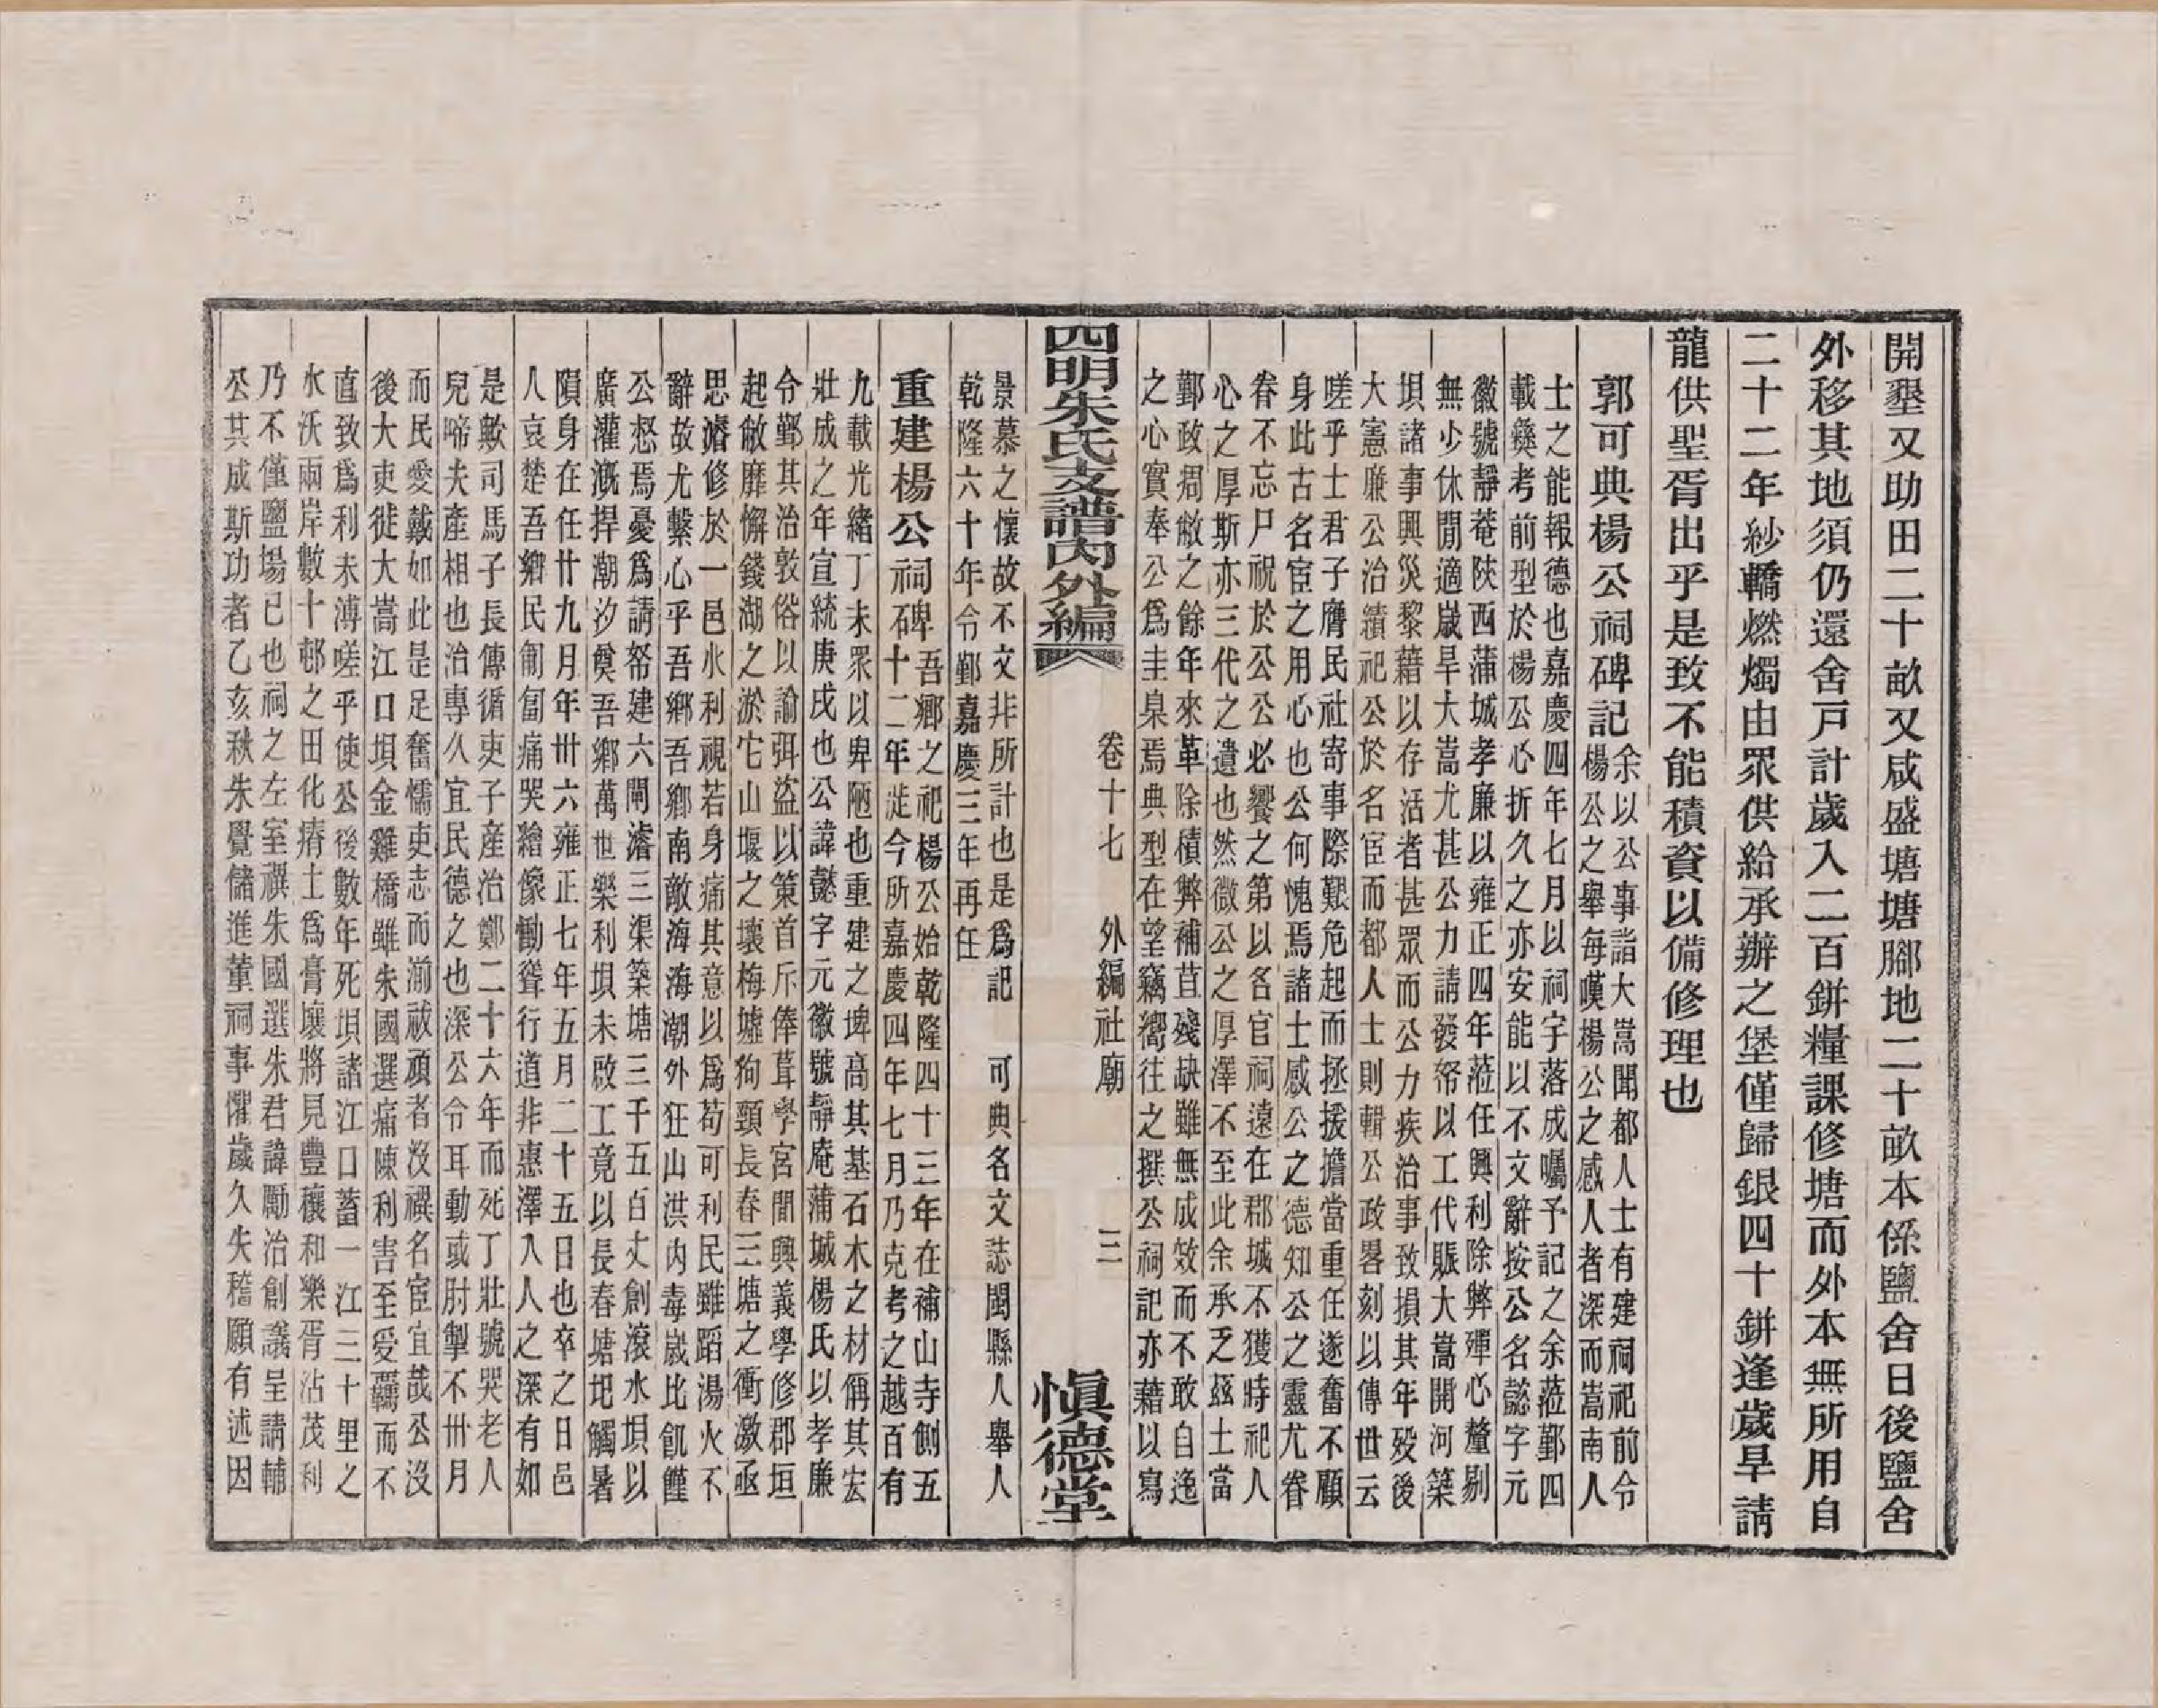 開墾又助田二十畝又咸盛塘塘腳地二十畝本係鹽舍日後鹽舍
外移其地須仍還舍戸計歲入二百鉼糧課修塘而外本無所用自
二十二年紗轎燃燭由眾供給承辦之堡僅歸銀四十鉼逢歲旱請
龍供聖胥出乎是致不能積資以備修理也
郭可典楊公祠碑記
余以公事詣大嵩聞都人士有建祠祀前令
楊公之舉每嘆楊公之感人者深而嵩南人
士之能報德也嘉慶四年七月以祠宇落成囑予記之余蒞鄞四
載繇考前型於楊公心折久之亦安能以不文辭按公名懿字元
徽號靜菴陝西蒲城孝廉以雍正四年蒞任興利除弊殫心釐剔
無少休閒適歲旱大嵩尤甚公力請發帑以工代賑大嵩開河築
垻諸事興災黎藉以存活者甚眾而公力疾治事致損其年歿後
大憲廉公治績祀公於名宦而都人士則輯公政畧刻以傳世云
嗟乎士君子膺民社寄事際艱危起而拯援擔當重任遂奮不顧
身此古名宦之用心也公何愧焉諸士感公之德知公之靈尤眷
眷不忘尸祝於公公必饗之第以各官祠遠在郡城不獲時祀人
心之厚斯亦三代之遺也然微公之厚澤不至此余承乏茲土當
鄞政凋敝之餘年來革除積弊補苴殘缺雖無成效而不敢自逸
之心實奉公爲圭臬焉典型在望竊嚮往之撰公祠記亦藉以寫
四明朱氏支譜內外編
卷十七 外編社廟 三
愼德堂
景慕之懷故不文非所計也是爲記 可典名文誌閩縣人舉人
乾隆六十年令鄞嘉慶三年再任
重建楊公祠碑
吾鄉之祀楊公始乾隆四十三年在補山寺側五
十二年年蹝今所嘉慶四年七月乃克考之越百有
九載光緒丁未眾以卑陋也重建之埤高其基石木之材偁其宏
壯成之年宣統庚戌也公諱懿字元徽號靜庵蒲城楊氏以孝廉
令鄞其治敦俗以諭弭盜以策首斥俸葺學宮間興義學修郡垣
起敝靡懈錢湖之淤它山堰之壞梅墟狗頸長春三塘之衝激亟
思濬修於一邑水利視若身痛其意以爲苟可利民雖蹈湯火不
辭故尤繫心乎吾鄉吾鄉南敵海海潮外狂山洪內毒歲比飢饉
公惄焉憂爲請帑建六閘濬三渠築塘三千五百丈創滾水垻以
廣灌溉捍潮汐奠吾鄉萬世樂利垻未啟工竟以長春塘圯觸暑
隕身在任廿九月年卅六雍正七年五月二十五日也卒之日邑
人哀楚吾鄉民匍匐痛哭繪像慟聳行道非惠澤入人之深有如
是歟司馬子長傳循吏子產治鄭二十六年而死丁壯號哭老人
兒啼夫產相也治專久宜民德之也深公令耳動或肘掣不卅月
而民愛戴如此是足奮懦吏志而湔祓頑者歿禩名宦宜哉公沒
後大吏徙大嵩江口垻金雞橋雖朱國選痛陳利害至受羈而不
直致爲利未溥嗟乎使公後數年死垻諸江口蓄一江三十里之
水沃兩岸數十邨之田化瘠土爲膏壤將見豐穰和樂胥沾茂利
乃不僅鹽場已也祠之左室禩朱國選朱君諱勵治創議呈請輔
公其成斯功者乙亥秋朱覺儲進董祠事懼歲久失稽願有述因